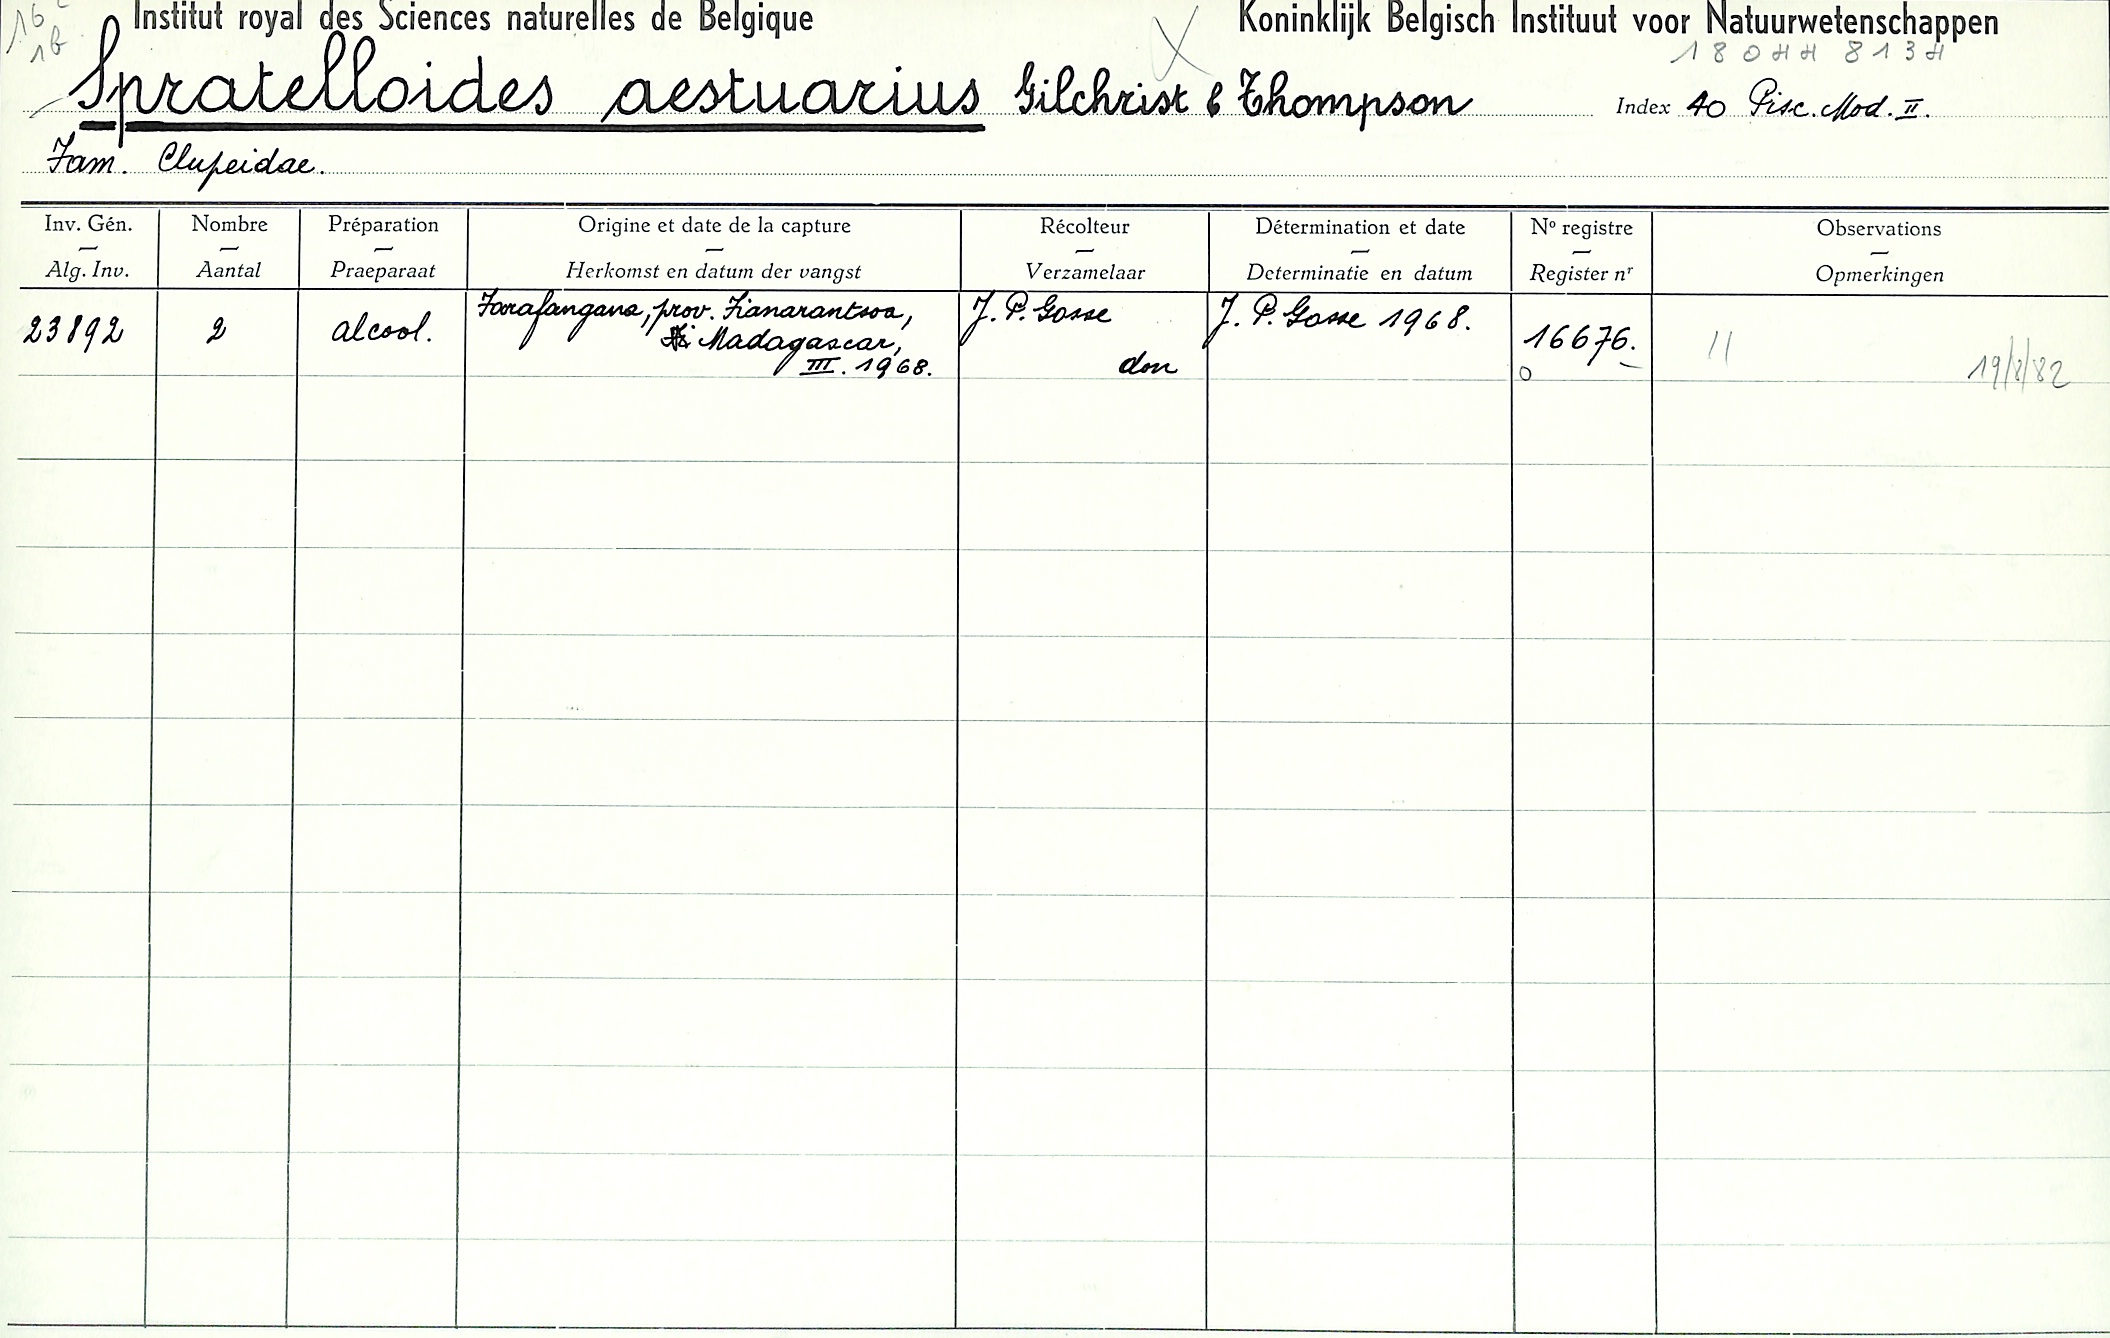 Institut royal des Sciences naturelles de Belgique Koninklijk Belgisch Instituut voor Natuurwetenschappen
16
1b
18044 8134
Spratelloides aestuarius Gilchrist & Thompson Index 40 Pisc. Mod. II.
Fam. Clupeidae.
Inv. Gén. Nombre Préparation Origine et date de la capture Récolteur Détermination et date No registre Observations
Alg. Inv. Aantal Praeparaat Herkomst en datum der vangst Verzamelaar Determinatie en datum Register nr Opmerkingen
23892 2 alcool. Farafangana, prov. Fianarantsoa, J. P. Gosse J. P. Gosse 1968. 16676. 11
Madagascar,
III. 1968. don 0 19/8/82